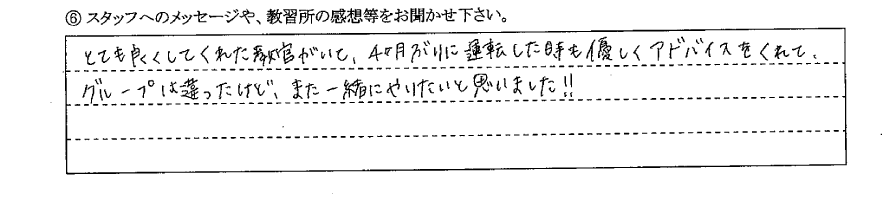 ⑥ スタッフへのメッセージや、教習所の感想等をお聞かせ下さい。
とても良くしてくれた教官がいて、4ヶ月ぶりに運転した時も優しくアドバイスをくれて、
グループは違ったけど、また一緒にやりたいと思いました!!